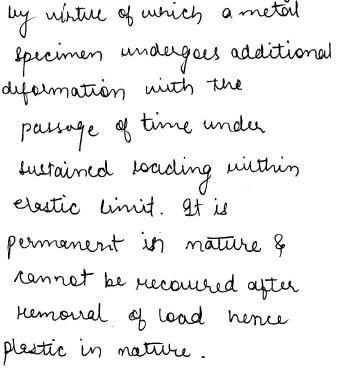 by virtue of which a metal
specimen undergoes additional
deformation with the
passage of time under
sustained loading within
elastic limit. It is
permanent in nature &
cannot be recoured after
removal of load hence
plastic in nature.